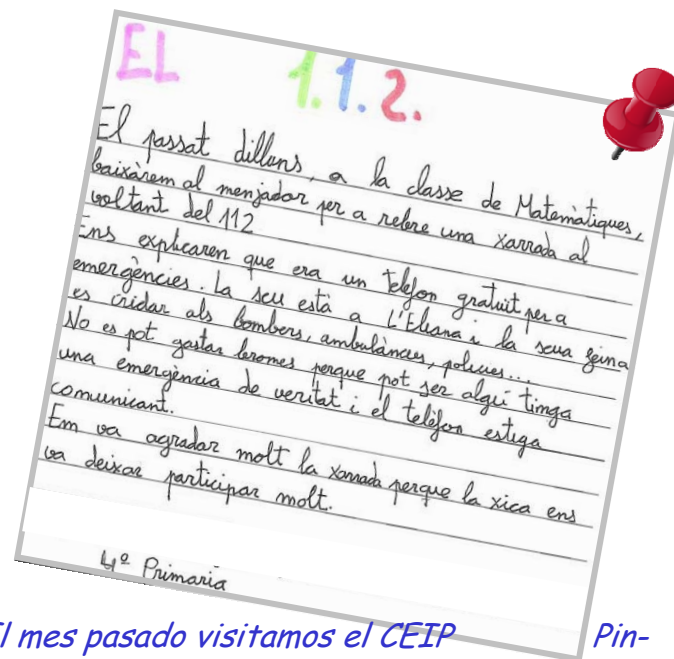 EL 1.1.2.
El passat dilluns, a la classe de Matemàtiques,
baixàrem al menjador per a rebre una xarrada al
voltant del 112
Ens explicaren que era un telèfon gratuït per a
emergències. La seu està a L'Eliana i la seua feina
es cridar als bombers, ambulàncies, policies...
No es pot gastar bromes perque pot ser algú tinga
una emergència de veritat i el telèfon estiga
comunicant.
Em va agradar molt la xarrada perque la xica ens
va deixar participar molt.
4º Primaria
El mes pasado visitamos el CEIP Pin-